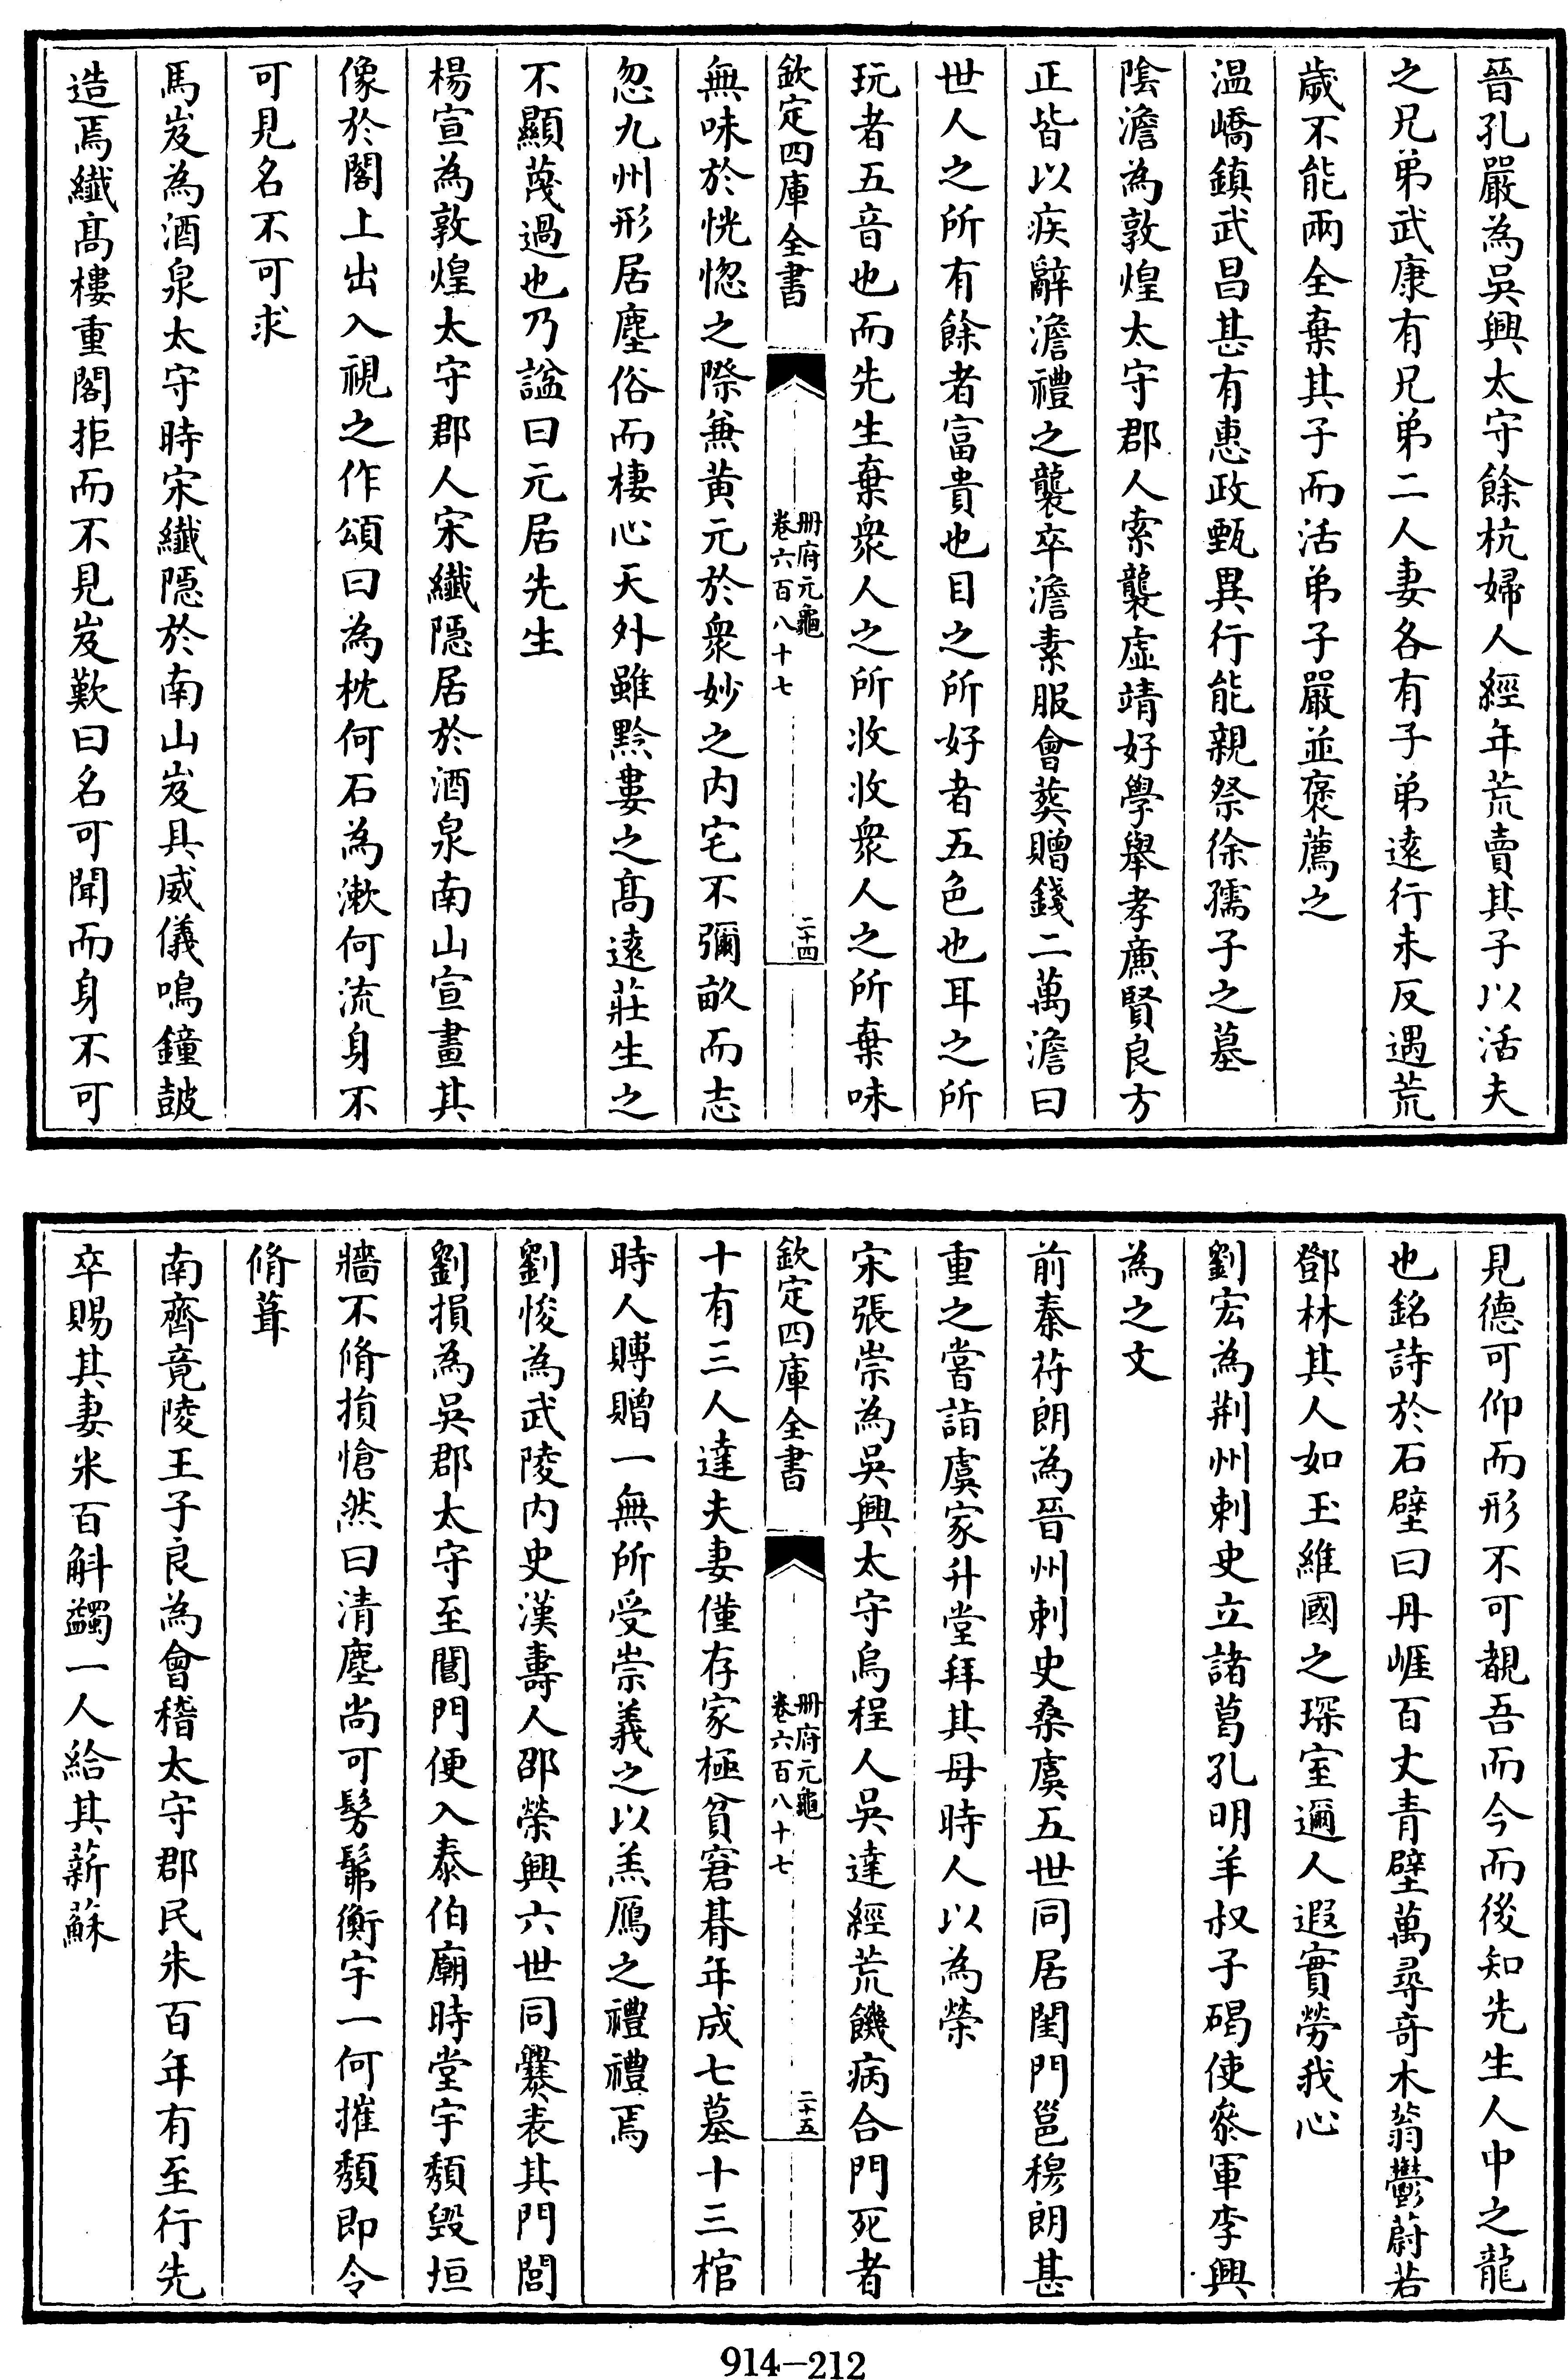 晉孔嚴為吳興太守餘杭婦人經年荒賣其子以活夫
之兄弟武康有兄弟二人妻各有子弟遠行未反遇荒
歲不能兩全棄其子而活弟子嚴並褒薦之
温嶠鎮武昌甚有惠政甄異行能親祭徐孺子之墓
陰澹為敦煌太守郡人索襲虛靖好學舉孝廉賢良方
正皆以疾辭澹禮之襲卒澹素服會葬贈錢二萬澹曰
世人之所有餘者富貴也目之所好者五色也耳之所
玩者五音也而先生棄衆人之所收收衆人之所棄味
欽定四庫全書
册府元龜
卷六百八十七
二十四
無味於恍惚之際兼黄元於衆妙之内宅不彌畝而志
忽九州形居塵俗而棲心天外雖黔婁之髙遠莊生之
不顯蔑過也乃諡曰元居先生
楊宣為敦煌太守郡人宋纖隱居於酒泉南山宣畫其
像於閣上出入視之作頌曰為枕何石為漱何流身不
可見名不可求
馬岌為酒泉太守時宋纖隱於南山岌具威儀鳴鐘鼓
造焉纖髙樓重閣拒而不見岌歎曰名可聞而身不可
見德可仰而形不可覩吾而今而後知先生人中之龍
也銘詩於石壁曰丹崕百丈青壁萬尋竒木蓊鬱蔚若
鄧林其人如玉維國之琛室邇人遐實勞我心
劉宏為荆州刺史立諸葛孔明羊叔子碣使叅軍李興
為之文
前秦苻朗為晉州刺史桑虞五世同居閨門邕穆朗甚
重之嘗詣虞家升堂拜其母時人以為榮
宋張崇為吳興太守烏程人吳達經荒饑病合門死者
欽定四庫全書
册府元龜
卷六百八十七
二十五
十有三人達夫妻僅存家極貧窘朞年成七墓十三棺
時人賻贈一無所受崇義之以羔鴈之禮禮焉
劉悛為武陵内史漢壽人邵榮興六世同爨表其門閭
劉損為吳郡太守至閶門便入泰伯廟時堂宇頽毀垣
牆不脩損愴然曰清塵尚可髣髴衡宇一何摧頽即令
脩葺
南齊竟陵王子良為會稽太守郡民朱百年有至行先
卒賜其妻米百斛蠲一人給其薪蘇
914-212